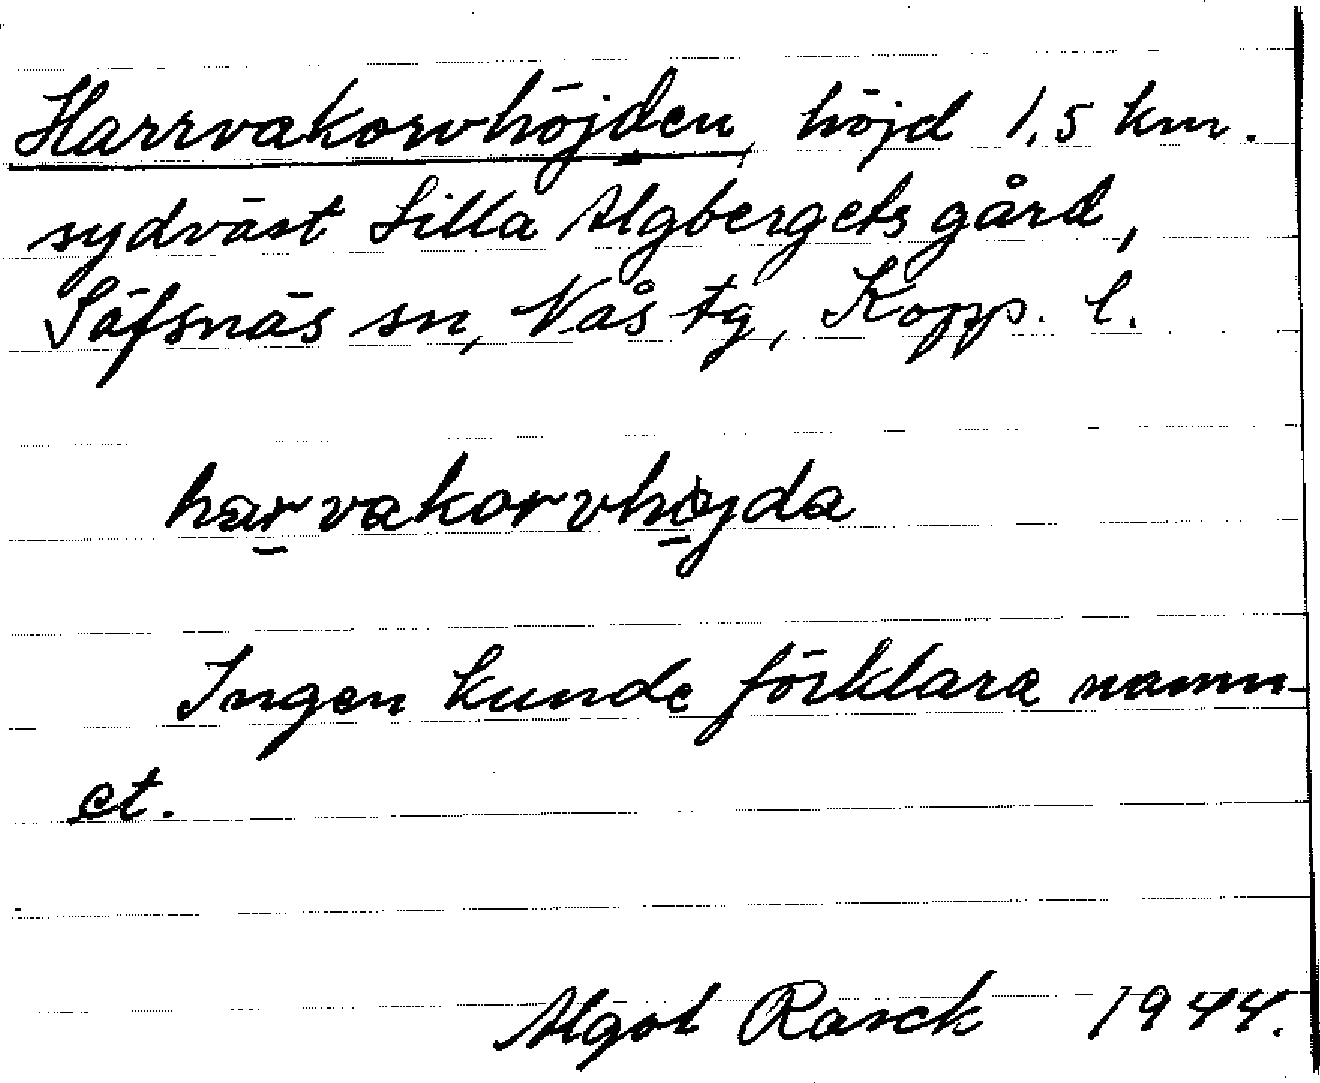 Harrvakorvhöjden, höjd 1,5 km.
sydväst Lilla Älgbergets gård,
Säfsnäs sn, Nås tg, Kopp. l.
harvakorvhöjda
Ingen kunde förklara namn-
et.
Algot Rasck 1944.